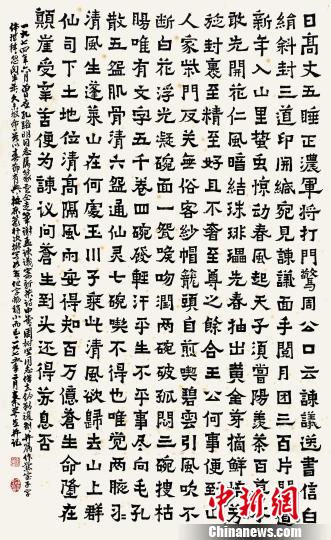 日高丈五睡正濃軍將打門驚周公口云諫議送書信白
絹斜封三道印開緘宛見諫議面手閱月團三百片聞道
新年入山里蟄虫惊动春風起天子湏嘗陽羡茶百草不
敢先開花仁風暗結珠琲瓃先春抽出黄金芽摘鮮焙芳
旋封裹至精至好且不奢至尊之餘合王公何事便到山
人家柴門反关無俗客紗帽籠頭自煎喫碧雲引風吹不
断白花浮光凝碗面一碗喉吻潤兩碗破孤悶三碗搜枯
腸唯有文字五千卷四碗發輕汗平生不平事尽向毛孔
散五碗肌骨清六碗通仙灵七碗喫不得也唯觉兩腋習習
清風生蓬萊山在何處玉川子乘此清風欲歸去山上群
仙司下土地位清高隔風雨安得知百万億蒼生命墮在
顛崖受辛苦便为諫议问蒼生到头还得苏息否
一九七四年六月
中新网
www.chinanews.com